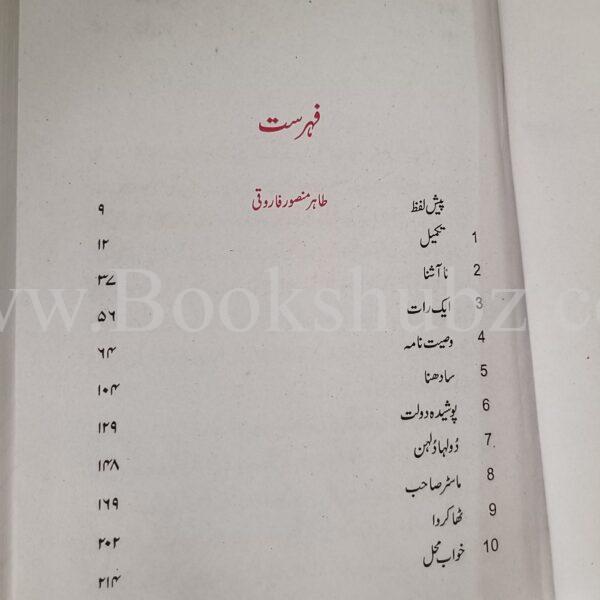 فہرست
پیش لفظ طاہر منصور فاروقی ۹
1 تکمیل ۱۲
2 نا آشنا ۳۷
3 ایک رات ۵۶
4 وصیت نامہ ۶۴
5 سادھنا ۱۰۴
6 پوشیدہ دولت ۱۲۹
7 دُولہا دُلہن ۱۴۸
8 ماسٹر صاحب ۱۶۹
9 ٹھاکردا ۲۰۲
10 خواب محل ۲۱۴
ww.Bookshubz.co